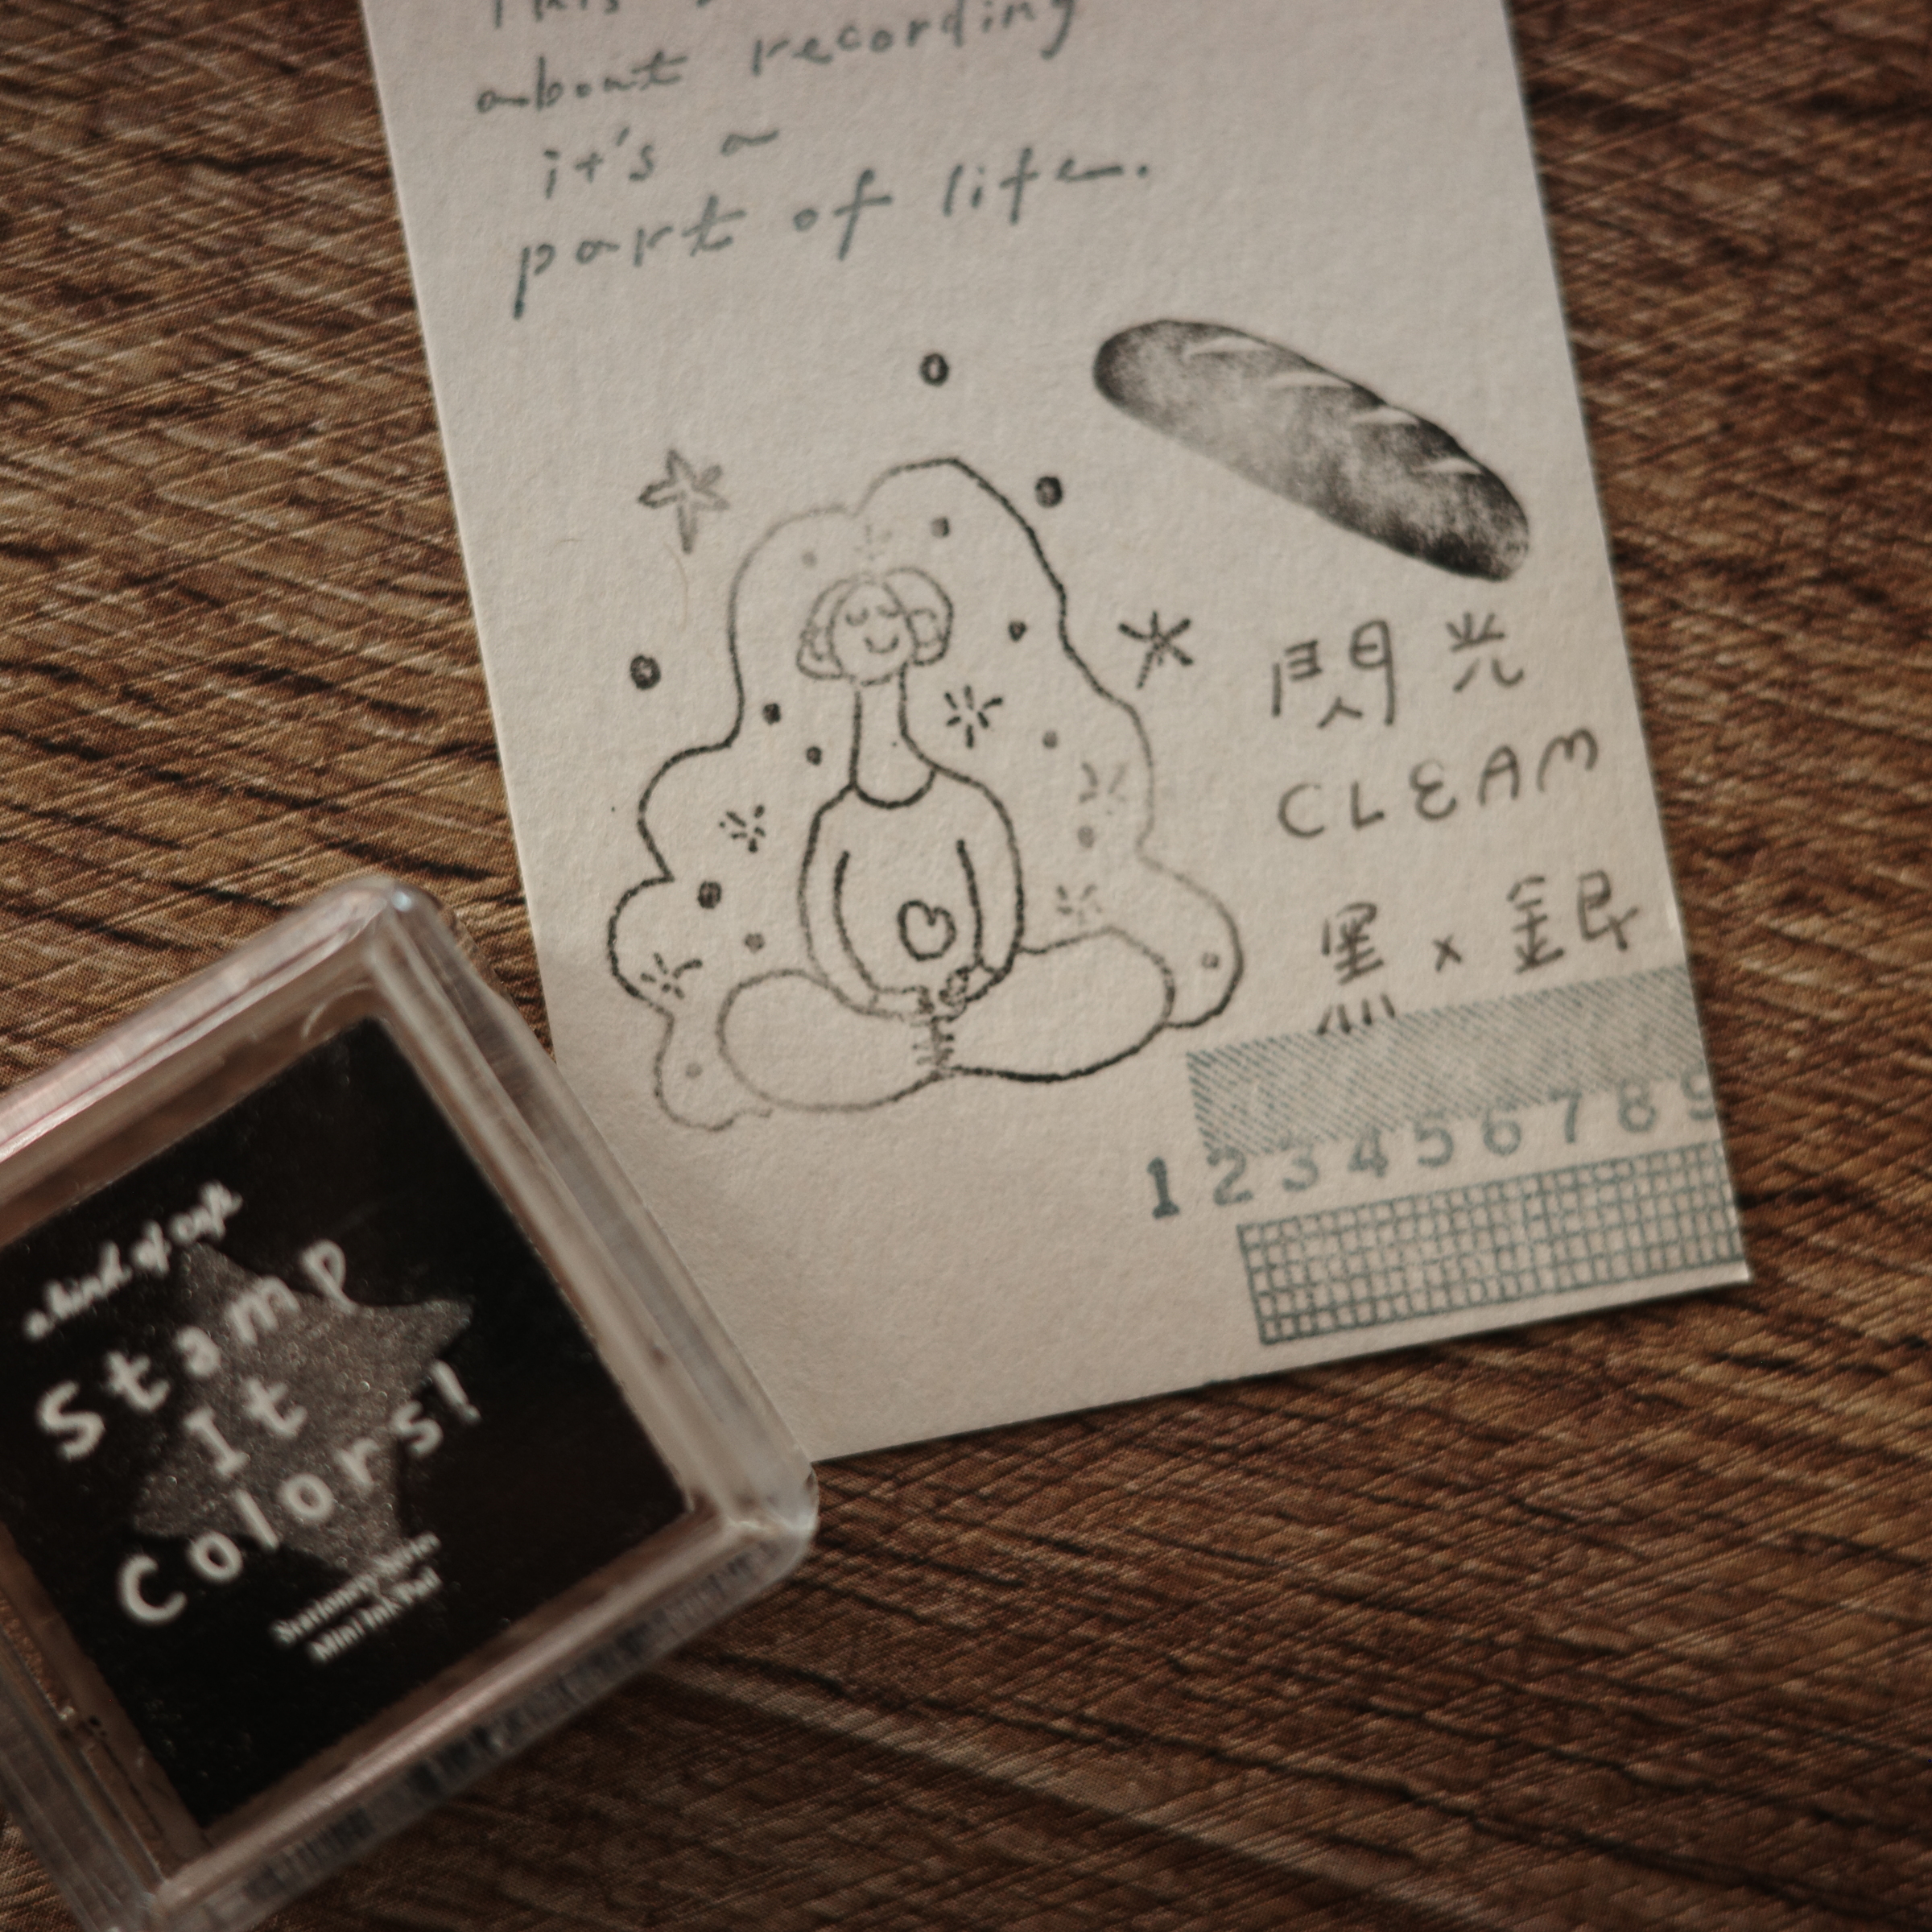 This
about recording
it's a
part of life.
閃光
CLEAM
黑 x 銀
1 2 3 4 5 6 7 8 9
a kind of café
Stamp
It
Colors!
Stationery Series
Mini Ink Pad